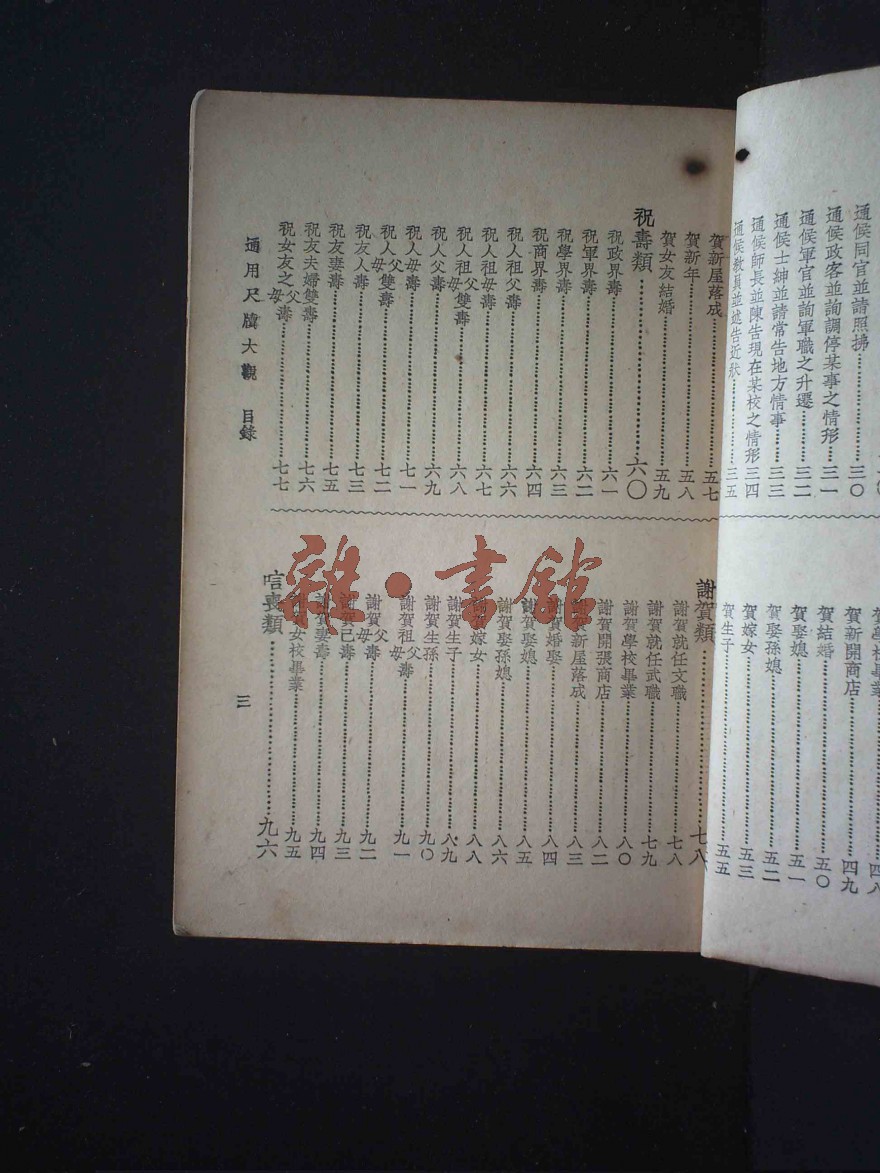 通候同官並請照拂……三〇
通候政客並詢調停某事之情形…三一
通候軍官並詢軍職之升遷……三二
通候士紳並請常告地方情事……三三
通候師長並陳告現在某校之情形…三四
通候教員並述告近狀……三五
賀新開商店……四九
賀結婚……五〇
賀娶媳……五一
賀娶孫媳……五二
賀嫁女……五三
賀生子……五五
賀新屋落成……五七
賀新年……五八
賀女友結婚……五九
祝壽類……六〇
祝政界壽……六一
祝軍界壽……六二
祝學界壽……六三
祝商界壽……六四
祝人祖父壽……六六
祝人祖母壽……六七
祝人祖父母雙壽……六八
祝人父壽……六九
祝人母壽……七一
祝人父母雙壽……七二
祝友人壽……七三
祝友妻壽……七五
祝友夫婦雙壽……七六
祝女友之父母壽……七七
謝賀類……七八
謝賀就任文職……七八
謝賀就任武職……七九
謝賀學校畢業……八〇
謝賀開張商店……八二
謝賀新屋落成……八三
謝賀婚娶……八四
謝賀娶媳……八五
謝賀娶孫媳……八六
謝賀嫁女……八八
謝賀生子……八九
謝賀生孫……九〇
謝賀祖父母壽……九一
謝賀父母壽……九二
謝賀己壽……九三
謝賀妻壽……九四
謝賀女校畢業……九五
唁喪類……九六
通用尺牘大觀 目錄
三
雜·書館